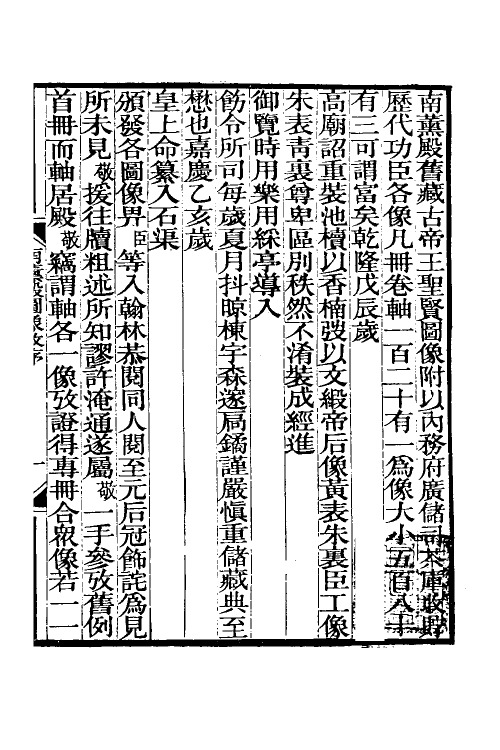 南薰殿舊藏古帝王聖賢圖像附以內務府廣儲司茶庫收貯
歷代功臣各像凡冊卷軸一百二十有一為像大小五百八十
有三可謂富矣乾隆戊辰歲
高廟詔重裝池櫝以香楠弢以文緞帝后像黃表朱裏臣工像
朱表靑裏尊卑區別秩然不淆裝成經進
御覽時用樂用綵亭導入
飭令所司每歲夏月抖晾棟宇森邃扃鐍謹嚴慎重儲藏典至
懋也嘉慶乙亥歲
皇上命纂入石渠
頒發各圖像畀臣等入翰林恭閱同人閱至元后冠飾詫為見
所未見敬援往牘粗述所知謬許淹通遂屬敬一手參攷舊例
首冊而軸居殿敬竊謂軸各一像攷證得專冊合眾像若一一
南薰殿圖像攷序
一